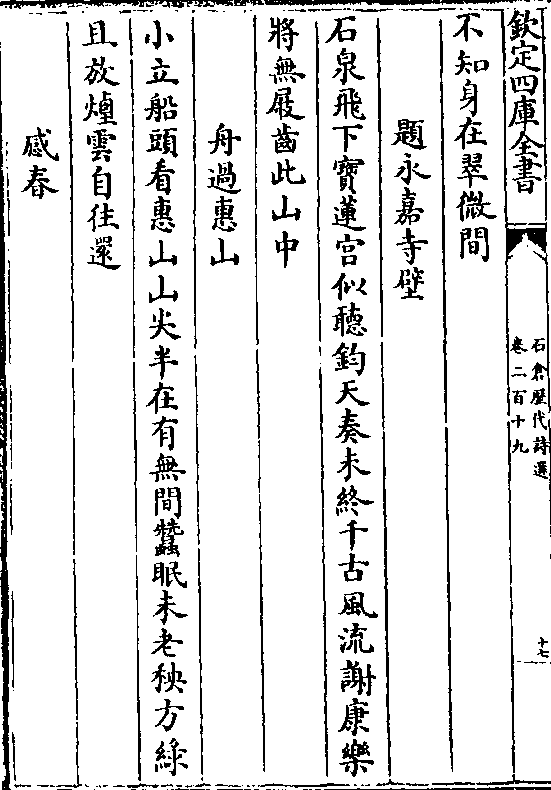 欽定四庫全書
石倉歷代詩選
卷二百十九
十七
不知身在翠微間
題永嘉寺壁
石泉飛下寶蓮宫似聽鈞天奏未終千古風流謝康樂
將無屐齒此山中
舟過惠山
小立船頭看惠山山尖半在有無間蠶眠未老秧方綠
且放煙雲自往還
感春